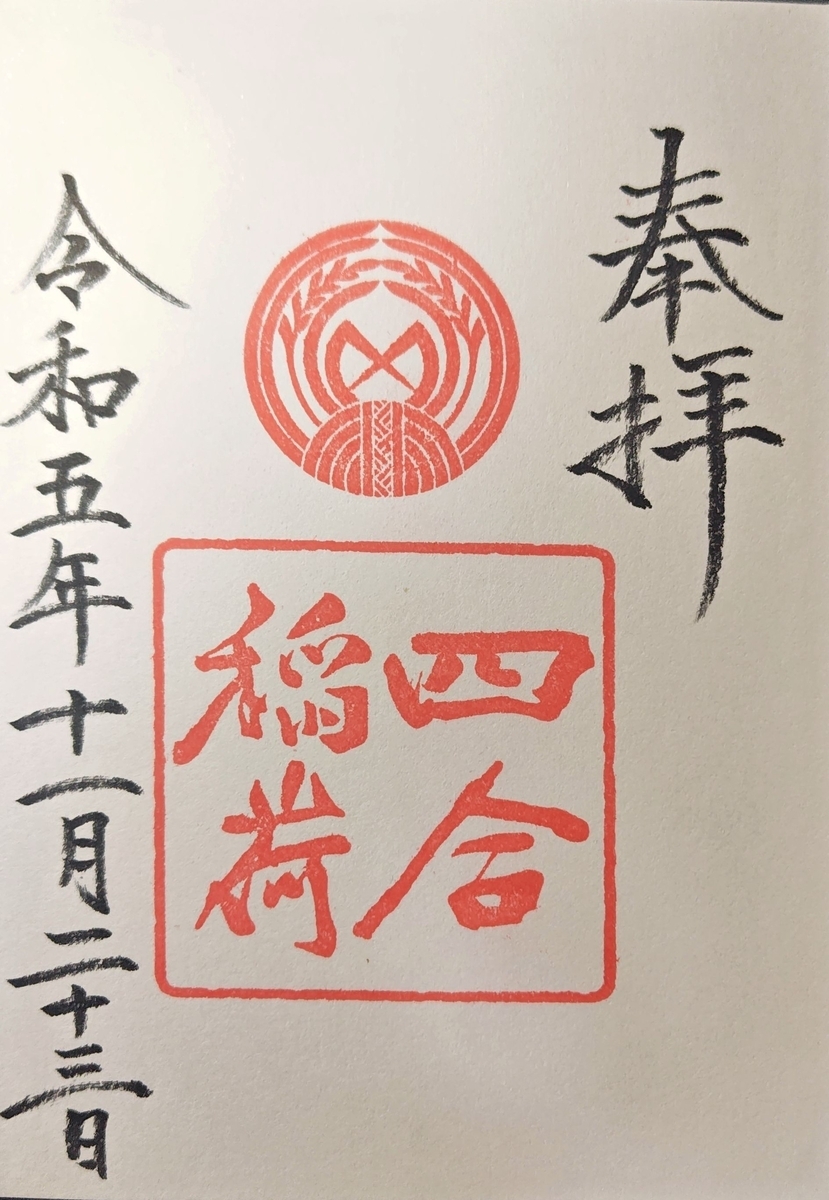 奉拝
四合
稲荷
令和五年十一月二十三日